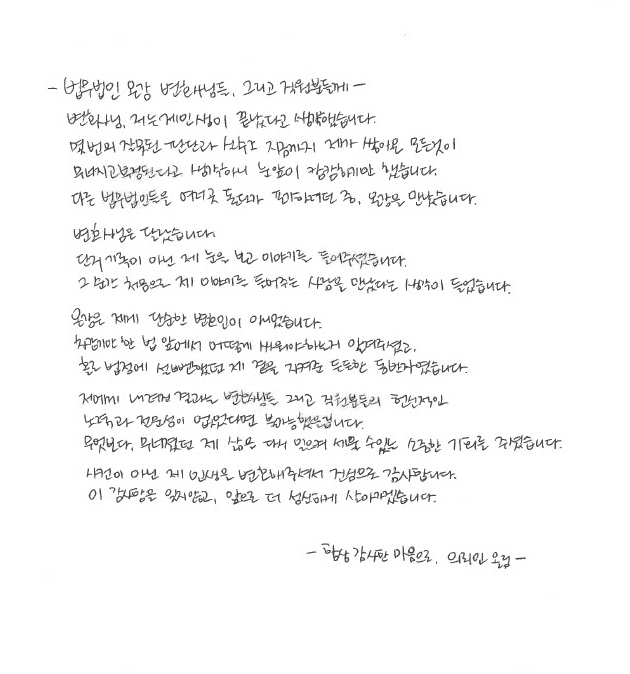 - 법무법인 온강 변호사님들, 그리고 직원분들께 -
변호사님, 저는 제 인생이 끝났다고 생각했습니다.
몇 번의 잘못된 판단과 실수로 지금까지 제가 쌓아온 모든것이
무너지고 부정된다고 생각하니 눈앞이 캄캄하기만 했습니다.
다른 법무법인들은 여러곳 돌다가 포기하려던 중, 온강을 만났습니다.
변호사님은 달랐습니다.
단지 기록이 아닌 제 눈을 보고 이야기를 들어주셨습니다.
그 순간 처음으로 제 이야기를 들어주는 사람을 만났다는 생각이 들었습니다.
온강은 제게 단순한 변호인이 아니었습니다.
차갑기만 한 법 앞에서 어떻게 싸워야하는지 알려주셨고,
홀로 법정에 설뻔했던 제 곁을 지켜준 든든한 동반자였습니다.
저에게 내려진 결과는 변호사님들 그리고 직원분들의 헌신적인
노력과 전문성이 없었다면 불가능했을겁니다.
무엇보다, 무너졌던 제 삶을 다시 일으켜 세울 수있는 소중한 기회를 주셨습니다.
사건이 아닌 제 인생을 변호해주셔서 진심으로 감사합니다.
이 감사함을 잊지않고, 앞으로 더 성실하게 살아가겠습니다.
- 항상 감사한 마음으로, 의뢰인 올림 -